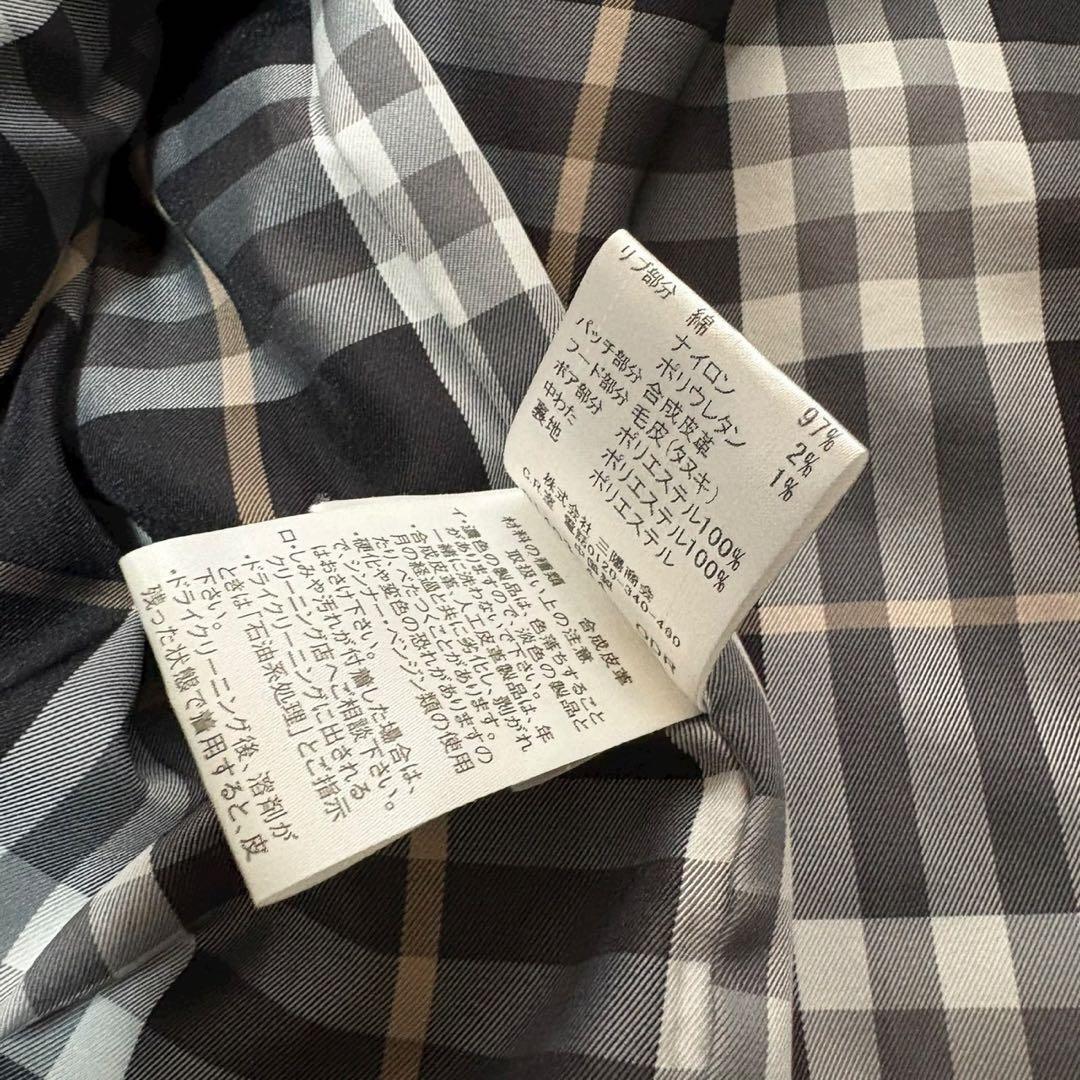 リブ部分 綿 97%
ナイロン 2%
ポリウレタン 1%
パッチ部分 合成皮革
フード部分 毛皮(タヌキ)
ボア部分 ポリエステル100%
中わた ポリエステル100%
裏地 ポリエステル
株式会社 三陽商会
C.R.室 電話0120-340-460
材料の種類 合成皮革
取扱い上の注意
イ.濃色の製品は、色落ちすること
がありますので、淡色の製品と
一緒に洗わないで下さい。
合成皮革、人工皮革製品は、年
月の経過と共に劣化し、剥がれ
たり、べたつくことがあります。
硬化や変色の恐れがありますの
で、シンナー・ベンジン類の使用
はおさけ下さい。
ロ.しみや汚れが付着した場合は、
クリーニング店へご相談下さい。
・ドライクリーニングに出される
ときは「石油系処理」とご指示
下さい。
・ドライクリーニング後、溶剤が
残った状態で着用すると、皮